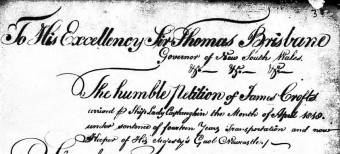 To His Excellency Sir Thomas Brisbane
Governor of New South Wales.
&c &c &c
The humble Petition of James Crofts
arrived p Ship Lady Castlereagh in the Month of April 1818.
under sentence of fourteen Years Transportation and now
Keeper of His Majesty's Gaol Newcastle,